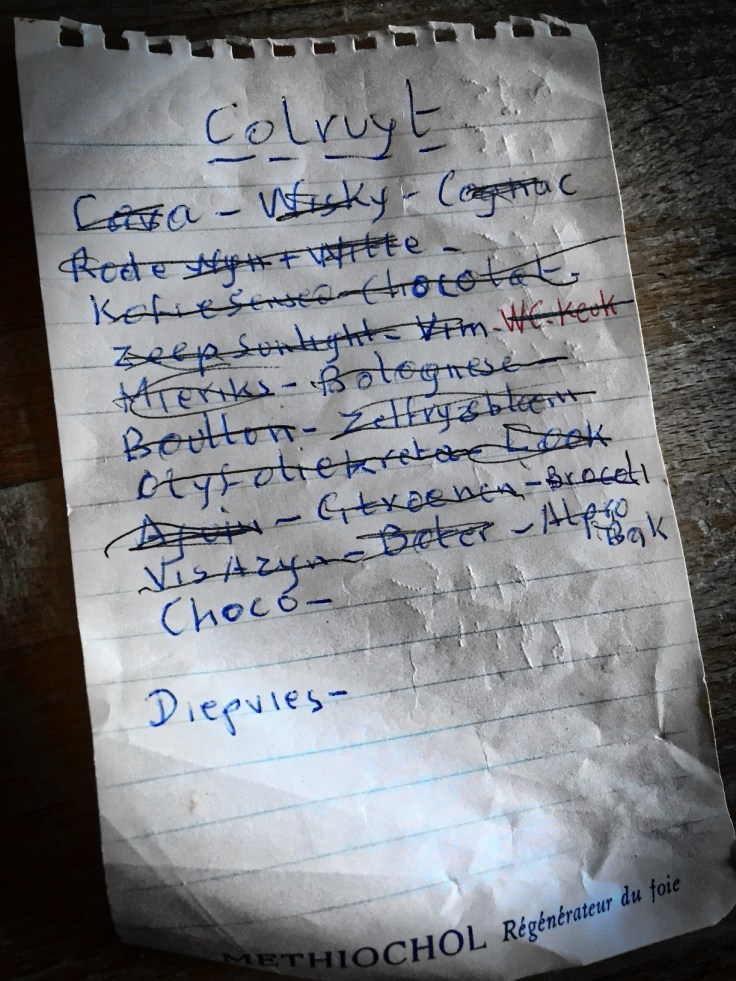 Colruyt
Cava - Wisky - Cognac
Rode Wyn + Witte -
Kofie Senseo - Chocolat -
Zeep Sunlight - Vim - WC-Keuk
Mieriks - Bolognese
Boullon - Zelfryzbloem
Olyfolie kreta - Look
Ajuin - Citroenen - Brocoli
Vis Azyn - Boter -
Bak
Choco -
Diepvies -
METHIOCHOL Régénérateur du foie